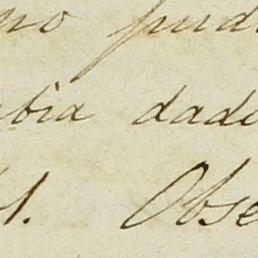 no pud
bia dad
l. Obse